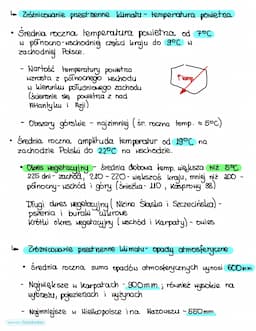 ↳ Zróżnicowanie przestrzenne klimatu - temperatura powietrza
• Średnia roczna temperatura powietrza od 7°C
w północno-wschodniej części kraju do 9°C w
zachodniej Polsce.
- Wartość temperatury powietrza
wzrasta z północnego wschodu
w kierunku południowego zachodu
(ścieranie się powietrza z nad
Atlantyku i Azji)
↑temp.
- Obszary górskie - najzimniej (śr. roczna temp. ≈ 5°C)
• Średnia roczna amplituda temperatur od 19°C na
zachodzie Polski do 22°C na wschodzie.
• Okres wegetacyjny - średnia dobowa temp. większa niż 5°C
225 dni - zachód, 210 - 220 - większość kraju, mniej niż 200 -
północny-wschód i góry (Śnieżka - 110, Kasprowy 88)
Długi okres wegetacyjny (Nizina Śląska i Szczecińska) -
pszenica i buraki cukrowe
Krótki okres wegetacyjny (wschód i Karpaty) - owies
↳ Zróżnicowanie przestrzenne klimatu - opady atmosferyczne
• Średnia roczna suma opadów atmosferycznych wynosi 600mm
- Największe w Karpatach - 900mm, również wysokie na
wybrzeżu, pojezierzach i wyżynach
- Najmniejsze w Wielkopolsce i na Mazowszu - 550mm